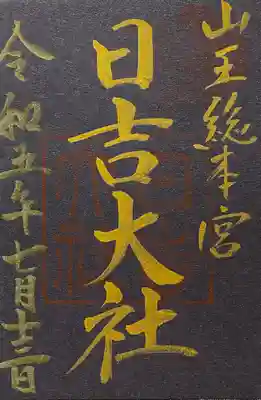 山王総本宮
日吉大社
令和五年七月十三日